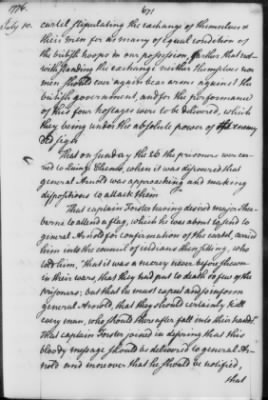 1776.
671
July 10.
cartel, stipulating the exchange of themselves &
their men for as many of equal condition of
the british troops in our possession, further that not-
withstanding the exchange neither themselves nor
men should ever again bear arms against the
british government; and for the performance
of this four hostages were to be delivered, which
they being under the absolute power of the enemy
did sign
That on sunday the 26 the prisoners were carri-
ed to Quinze Chenes, where it was discovered that
general Arnold was approaching and making
dispositions to attack them
That captain Forster having desired major Sher-
burne to attend a flag, which he was about to send to
general Arnold for confirmation of the cartel, carried
him into the council of indians then sitting, who
told him, "That it was a mercy never before shewn
in their wars, that they had put to death so few of the
prisoners; but that he must expect and so inform
general Arnold, that they should certainly kill
every man, who should thereafter fall into their hands."
That captain Forster joined in desiring that this
bloody message should be delivered to general Ar-
nold and moreover that he should be notified,
that